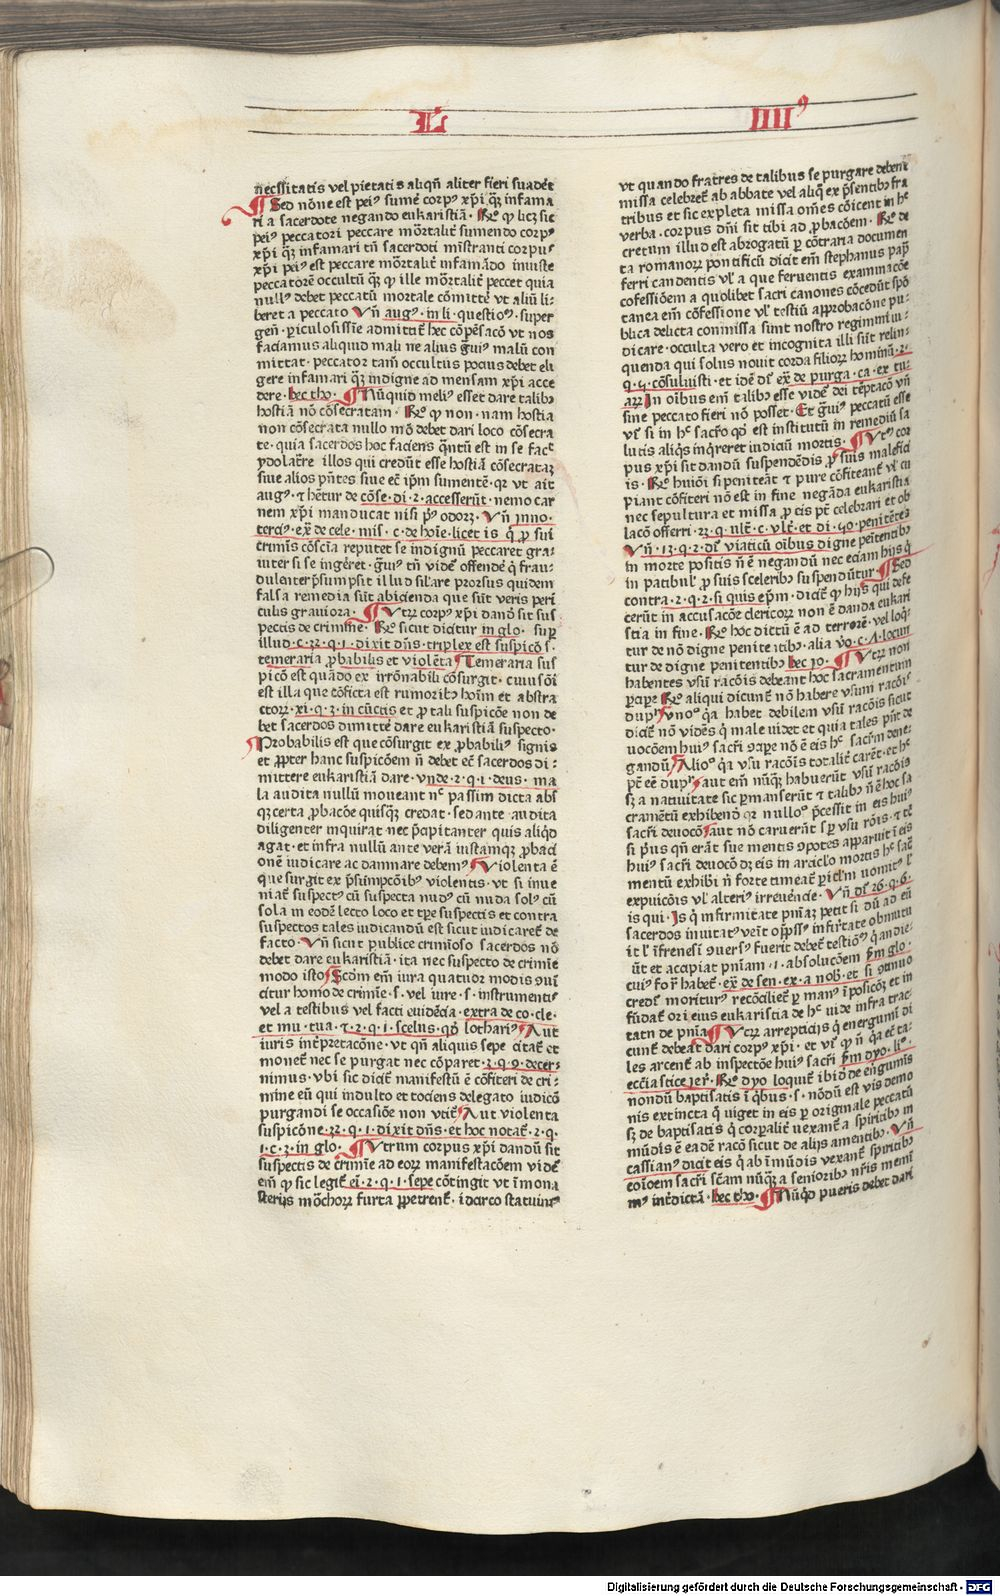 L IIII⁹
necssitatis vel pietatis aliqñ aliter fieri suadēt
¶ Sed nōne est pei⁹ sumē corp⁹ xp̄i q̄ꝫ infama
ri a sacerdote negando eukaristiā· R̄o ꝙ licꝫ sic
pei⁹ peccatori peccare mōrtalit̄ sumendo corp⁹
xp̄i q̄ꝫ infamari tn̄ sacerdoti mīstranti corpus
xp̄i pei⁹ est peccare mōrtalit̄ infamādo iniuste
peccatorē occultū q̄ꝫ ꝙ ille mōrtalit̄ peccet quia
null⁹ debet peccatū mortale cōmittē vt aliū li-
beret a peccato Vn̄ aug⁹ in li· questio⁹· super
gen̄· ꝑiculosissīe admittit̄ hec cōpēsacō vt nos
faciamus aliquid mali ne alius ḡui⁹ malū com
mittat· peccator tam̄ occultus pocius debet eli
gere infamari q̄ꝫ indigne ad mensam xp̄i acce
dere· hec tho· ¶ Nūquid meli⁹ esset dare talibꝫ
hostiā nō cōsecratam· R̄o ꝙ non· nam hostia
non cōsecrata nullo mō debet dari loco cōsecra
te· quia sacerdos hoc faciens q̄ntū est in se fac̄
ydolatr̄e illos qui credūt esse hostiā cōsecrataꝫ
siue alios pn̄tes siue ec̄ ip̄m sumentē· qꝛ vt ait
aug⁹· ⁊ hr̄etur de cōse· di·2·accesserūt· nemo car
nem xp̄i manducat nisi pr̄⁹ odorꝫ· Vn̄ Inno-
terci⁹· ex̄ de cele·mis·c·de hoīe·licet is q̄ ꝓ sui
crimīs cōsc̄ia reputet se indignū peccaret gra-
uiter si se ingēret· ḡui⁹ tn̄ videt̄ offendē q̄ frau-
dulenter p̄sumpsit illud sil̄are prorsus quidem
falsa remedia sūt abicienda que sūt veris peri
culis grauiora· ¶ Vtꝛꝫ corp⁹ xp̄i danō sit sus
pectis de crimīne· R̄o sicut dicitur in glo· sup̄
illud·c·32·q·1·dixit dn̄s·triplex est suspicō s·
temeraria ꝓbabilis et violēta ¶ Temeraria sus
picō est quādo ex irrōnabili cōsurgit· cuiusōi
est illa que cōficta est rumoribꝫ hoīm et abstra
ctorꝫ·xi·q·3·in cūctis et ꝓ tali suspicōe non de
bet sacerdos dimittē dare eukaristiā suspecto·
¶ Probabilis est que cōsurgit ex ꝓbabili⁹ signis
et ꝓpter hanc suspicōem n̄ debet ec̄ sacerdos di-
mittere eukaristiā dare· vnde·2·q·1·deus· ma
la audita nullū moueant nᶜ passim dicta abs
qꝫ certa ꝓbacōe quisqꝫ credat· sed ante·audita
diligenter inquirat· nec p̄cipitanter quis aliq̄d
agat· et infra nullū ante verā iustamqꝫ ꝓbaci
onē iudicare ac damnare debem⁹ ¶ Violenta ē
que surgit ex p̄sūmpcōibꝫ violentis· vt si inue
niat̄ suspect⁹ cū suspecta nud⁹ cū nuda sol⁹ cū
sola in eodē lecto loco et tp̄e suspectis et contra
suspectos tales iudicandū est sicut iudicaret̄ de
facto· Vn̄ sicut publice crimīoso sacerdos nō
debet dare eukaristiā· ita nec suspecto de crimīe
modo isto ¶ Scdm em̄ iura quatuor modis ɔuī
citur homo de crimīe·s·vel iure·s·instrumentis
vel a testibus vel facti euidēcia·extra de co·cle·
et mu·tua·⁊·2·q·1·scelus·qd̄ lothari⁹ ¶ Aut
iuris int̄pretacōne· vt qn̄ aliquis sepe citat̄ et
monet̄ nec se purgat nec cōparet·3·q·9·decer-
nimus· vbi sic dicit̄ manifestū ē cōfiteri de cri-
mine eū qui indulto et tociens delegato iudicō
purgandi se occasiōe non vtit̄ ¶ Aut violenta
suspicōne·32·q·1·dixit dn̄s·et hoc notat̄·2·q·
1·c·3·in glo· ¶ Vtrum corpus xp̄i dandū sit
suspectis de crimīe ad eorꝫ manifestacōem videt̄
em̄ ꝙ sic legit̄ ei·2·q·1·sepe cōtingit vt ī mona
sterijs mōchorꝫ furta ꝑpetrent̄· idcirco statuim⁹
vt quando fratres de talibus se purgare debent
missa celebret̄ ab abbate vel aliq̄ ex p̄sentibꝫ fra
tribus et sic expleta missa om̄es cōicent in hᶜ
verba·corpus dn̄i sit tibi ad ꝓbacōem· R̄o de
cretum illud est abrogatū ꝑ cōtraria documen
ta romanorꝫ pontificū dicit em̄ stephanus pap̄
ferri candentis vl̄ aque feruentis examinacōe
cōfessiōem a quolibet sacri canones cōcedūt spō
tanea em̄ cōfessione vl̄ testiū approbacōne pu-
blica delicta commissa sunt nostro regimini iu-
dicare· occulta vero et incognita illi sūt relin-
quenda qui solus nouit corda filiorꝫ hominū·2·
q·5·cōsuluisti·et idē ds̄ ex̄ de purga·ca·ex tu-
arꝫ In oībus em̄ talibꝫ esse videt̄ dei tēptacō vn̄
sine peccato fieri nō posset· Et ḡui⁹ peccatū esset
vl̄ si in hᶜ sacr̄o qd̄ est institutū in remediū sa
lutis aliq̄s inq̄reret iudiciū mortis· ¶ Vtꝫ cor
pus xp̄i sit dandū suspendēdis ꝓ suis malefici
is· R̄o huiōi si peniteāt ⁊ pure cōfiteant̄ vl̄ cu
piant cōfiteri nō est in fine negāda eukaristia
nec sepultura et missa ꝓ eis pt̄ celebrari et ob
lacō offerri·23·q·vlt̄·c·vlt̄·et di·50·penitētes
Vn̄·13·q·2·ds̄ viaticū oībus digne peītentibꝫ
in morte positis n̄ ē negandū nec eciam hijs q̄
in patibul̄ ꝓ suis sceleribꝫ suspendūtur· ¶ Sed
contra·2·q·2·si quis ep̄m·dicit̄ ꝙ hijs qui defe
cerūt in accusacōe clericorꝫ non ē danda eukari
stia in fine· R̄o hoc dictū ē ad terrorē· vel loq̄-
tur de nō digne penitentibꝫ· alia vō·c·A·locun
tur de digne penitentibꝫ hec Jo· ¶ Vtꝛꝫ non
habentes vsū racōis debeant hoc sacramentum
ꝑcipe R̄o aliqui dicunt̄ nō habere vsum racōis
dupl̄r ¶ Vno⁹ q̄a habet debilem vsū racōis sicut
dicit̄ nō vidēs q̄ male videt et quia tales pn̄t de
uocōem hui⁹ sacr̄i ɔcipe nō ē eis hᶜ sacr̄m dene-
gandū ¶ Alio⁹ q̄a vsu racōis totalit̄ carēt· et hᶜ
pt̄ eē dupl̄r ¶ aut em̄ nūq̄ꝫ habuerūt vsū racōis
sꝫ a natiuitate sic ꝑmanserūt ⁊ talibꝫ n̄ ē hoc sa
cramētū exhibendō qꝛ nullo⁹ p̄cessit in eis hui⁹
sacr̄i deuocō ¶ aut nō caruerūt sꝑ vsu rōis· ⁊ tē
si pr̄us qn̄ erāt sue mentis ɔpotes apparuit ī eis
hui⁹ sacr̄i deuocō dꝫ eis in articl̄o mortis hᶜ sac̄
mentū exhib̄i n̄ forte timeat̄ ꝑicl̄m vomit⁹ l̄
expuicōis vl̄ alteri⁹ irreuēncie· Vn̄ ds̄ 26·q·6·
is qui· Is q̄ infirmitate pn̄iaꝫ petit si dū ad eū
sacerdos inuitat⁹ venit oppss⁹ infirtate obmutu
it l̄ ī frenesī ɔuers⁹ fuerit debet̄ testiō⁹ q̄ audie-
rūt et accipiat pn̄iam·i·absolucōem scdm glo·
cui⁹ fo r̄ habet̄·ex̄ de sen·ex·a nob̄·et si ɔtinuo
credit̄ moritur⁹ recōcilient̄ ꝑ man⁹ ī posicōꝫ et in
fūdat̄ ori eius eukaristia de hᶜ vide infra trac-
tatu de pn̄ia ¶ Vtꝛꝫ arrepticijs q̄ energumī di
cunt̄ debeat dari corp⁹ xp̄i· et vr̄ ꝙ n̄ q̄a ec̄ ta-
les arcent̄ ab inspectōe hui⁹ sacr̄i scdm dyo·li⁰·
ecc̄iastice Jer̄· R̄o dyo loquit̄ ibidē de en̄gumīs
nondū baptisatis ī q̄bus·s·nōdū est vis demo
nis extincta q̄ viget in eis ꝑ originale peccatū
sꝫ de baptisatis q̄ corꝑalit̄ vexant̄ a spiritibꝫ in
mūdīs ē eadē racō sicut de alijs amentibꝫ· Vn̄
cassian⁹ dicit eis q̄ ab ī mūdis vexant̄ spiritibꝫ
cōīoem sacr̄i sc̄am nūq̄ꝫ a senioribꝫ nr̄is memi
m⁹ int̄dictā· hec tho· ¶ Nūq̄d pueris debet dari
Digitalisierung gefördert durch die Deutsche Forschungsgemeinschaft - DFG